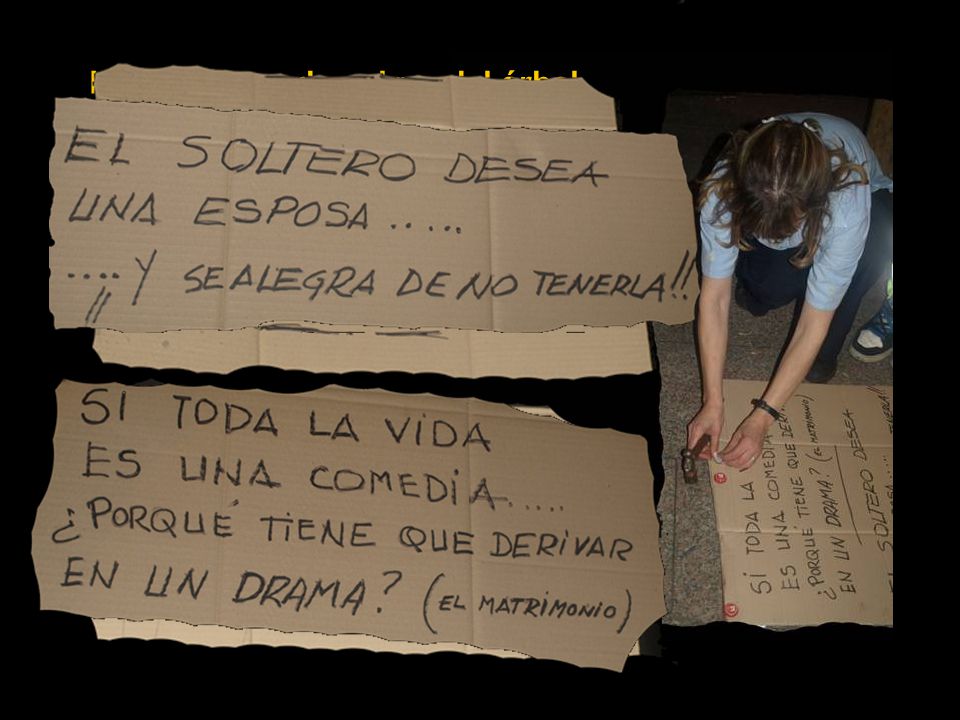 EL SOLTERO DESEA
UNA ESPOSA.....
....Y SE ALEGRA DE NO TENERLA!!
SI TODA LA VIDA
ES UNA COMEDIA.....
¿PORQUÉ TIENE QUE DERIVAR
EN UN DRAMA? (EL MATRIMONIO)
SI TODA LA
ES UNA COMEDIA
¿PORQUÉ TIENE QUE
EN UN DRAMA? (EL MATRIMONIO)
SOLTERO DESEA